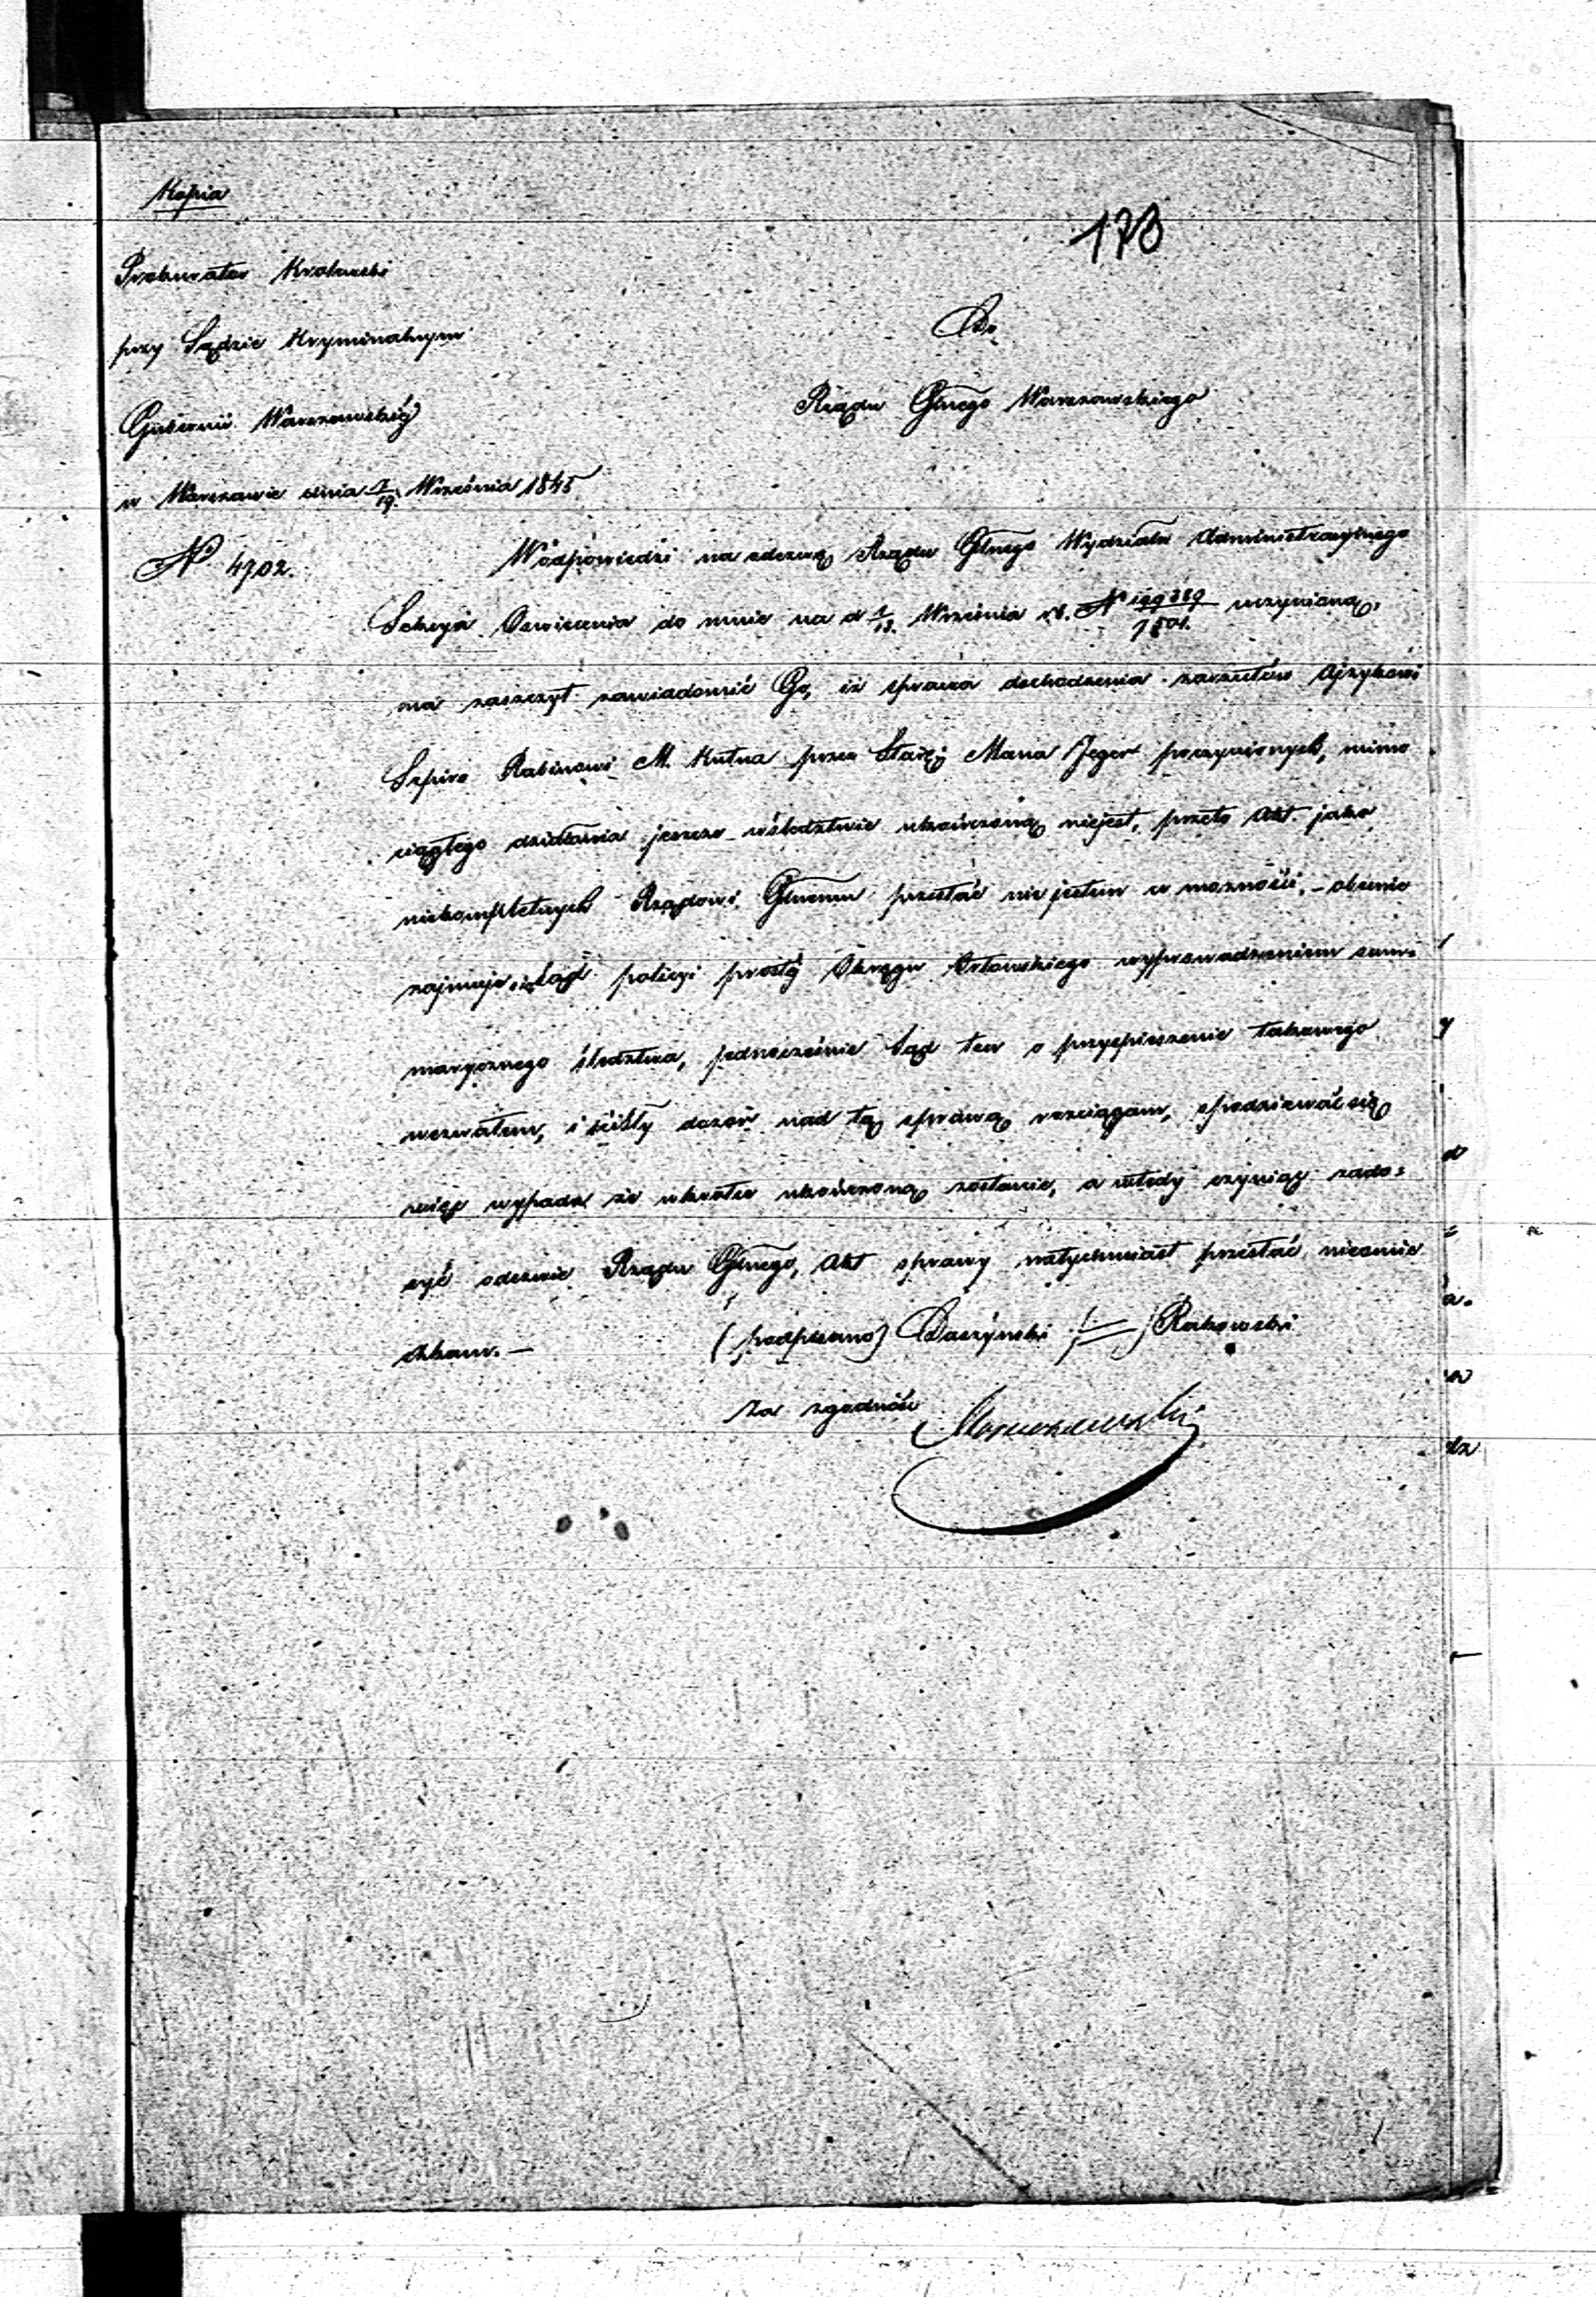 Kopia
178
Prokurator Krolewski
przy Sądzie Kryminalnym
Gubernii Warszawskiéj
w Warszawie dnia 7/19. Września 1845
Do
Rządu Glnego Warszawskiego
N 4702.
W odpowiedzi na odezwę Rządu Glnego Wydziału Administracyjnego
Sekcyi Oswiecenia do mnie na d 1/13. Września r.b. N uczynioną,
ma zaszczyt zawiadomić Go, iż sprawa dochodzenia zarzutów Ajzykowi
Szpiro Rabinowi M. Kutna przez Mana Jeger poczynionych, mimo
ciągłego działania jeszcze w śledztwie ukończoną niejest, przeto Akt jako
niekompletnych Rządowi Glnemu przesłać nie jestem w możności, – obecnie
zajmuje się Sąd policyi prostéj Okręgu Orłowskiego wyprowadzeniem sum=
marycznego śledztwa, jednocześnie Sąd ten o przyspieszenie takowego
wezwałem, i ścisły dozór nad tą sprawą rozciągam, spodziewać się
więc wypada że wkrotce ukończoną zostanie, a wtedy czyniąc zado=
syć odezwie Rządu Glnego, Akt sprawy natychmiast przesłać nieomie
szkam. –
(podpisano) Daszyński Rakowski
Za zgodność